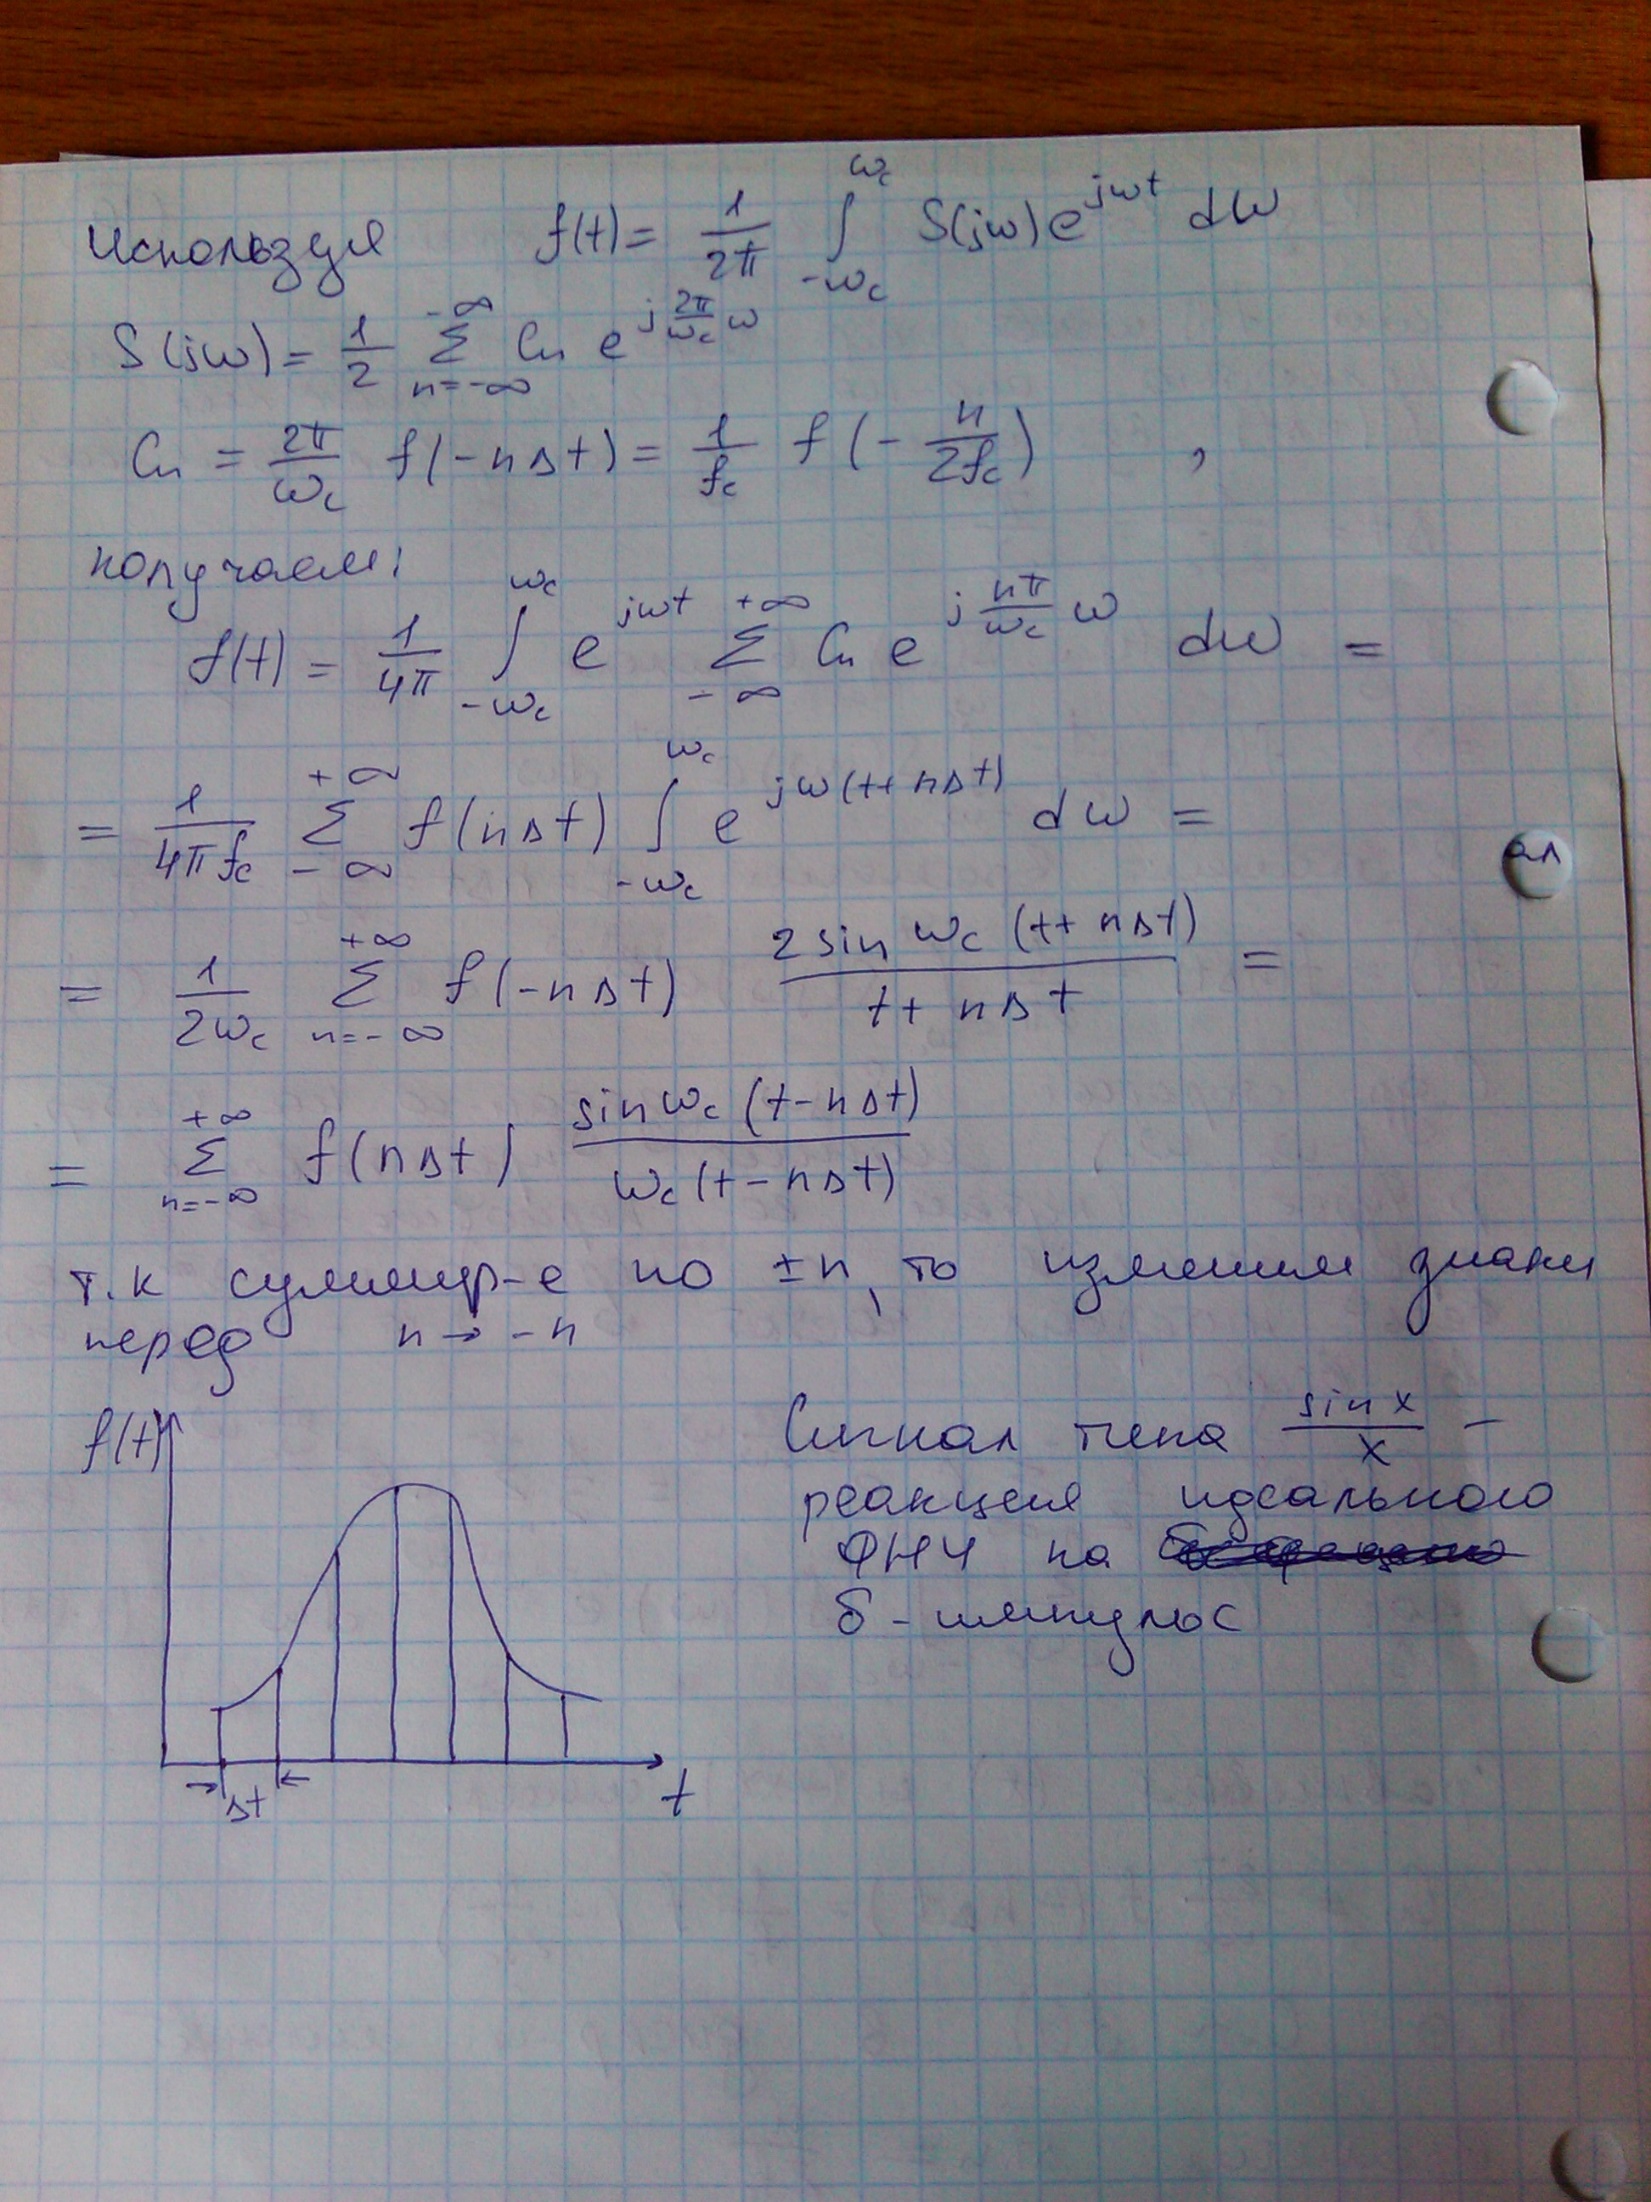 Используя f(t) = \frac{1}{2π} \int_{-ω_c}^{ω_c} S(jω) e^{jωt} dω
S(jω) = \frac{1}{2} \sum_{n=-∞}^{-∞} C_n e^{j\frac{2π}{ω_c}ω}
C_n = \frac{2π}{ω_c} f(-nΔt) = \frac{1}{f_c} f(-\frac{n}{2f_c}) ,
получаем:
f(t) = \frac{1}{4π} \int_{-ω_c}^{ω_c} e^{jωt} \sum_{-∞}^{+∞} C_n e^{j\frac{nπ}{ω_c}ω} dω =
= \frac{1}{4πf_c} \sum_{-∞}^{+∞} f(nΔt) \int_{-ω_c}^{ω_c} e^{jω(t+nΔt)} dω =
ал
= \frac{1}{2ω_c} \sum_{n=-∞}^{+∞} f(-nΔt) \frac{2 sin ω_c (t+nΔt)}{t+nΔt} =
= \sum_{n=-∞}^{+∞} f(nΔt) \frac{sin ω_c (t-nΔt)}{ω_c (t-nΔt)}
т.к суммир-е по ±n, то изменим знаки
перед n → -n
f(t)
Δt
t
Сигнал типа \frac{sin x}{x} -
реакция идеального
ФНЧ на
δ - импульс